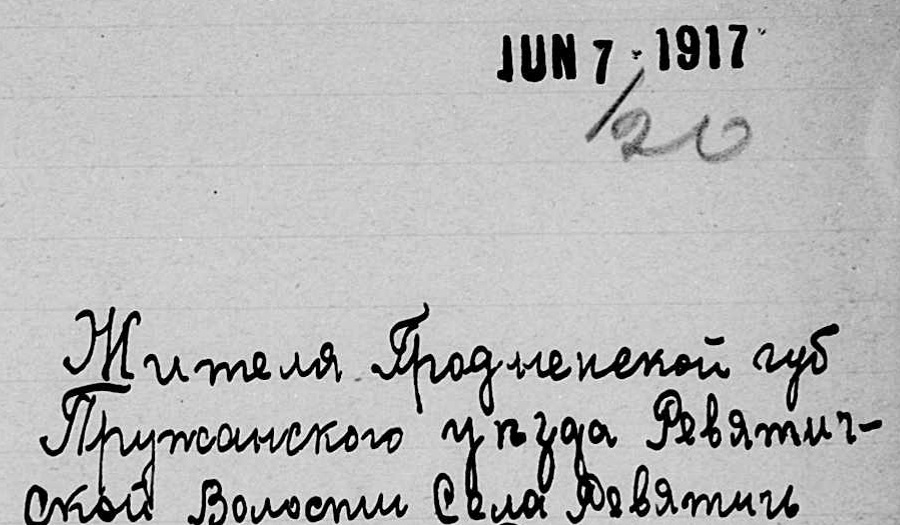 JUN 7 · 1917
/20
Жителя Гродненской губ
Пружанского уѣзда Ревятич-
ской Волости Села Ревятичь